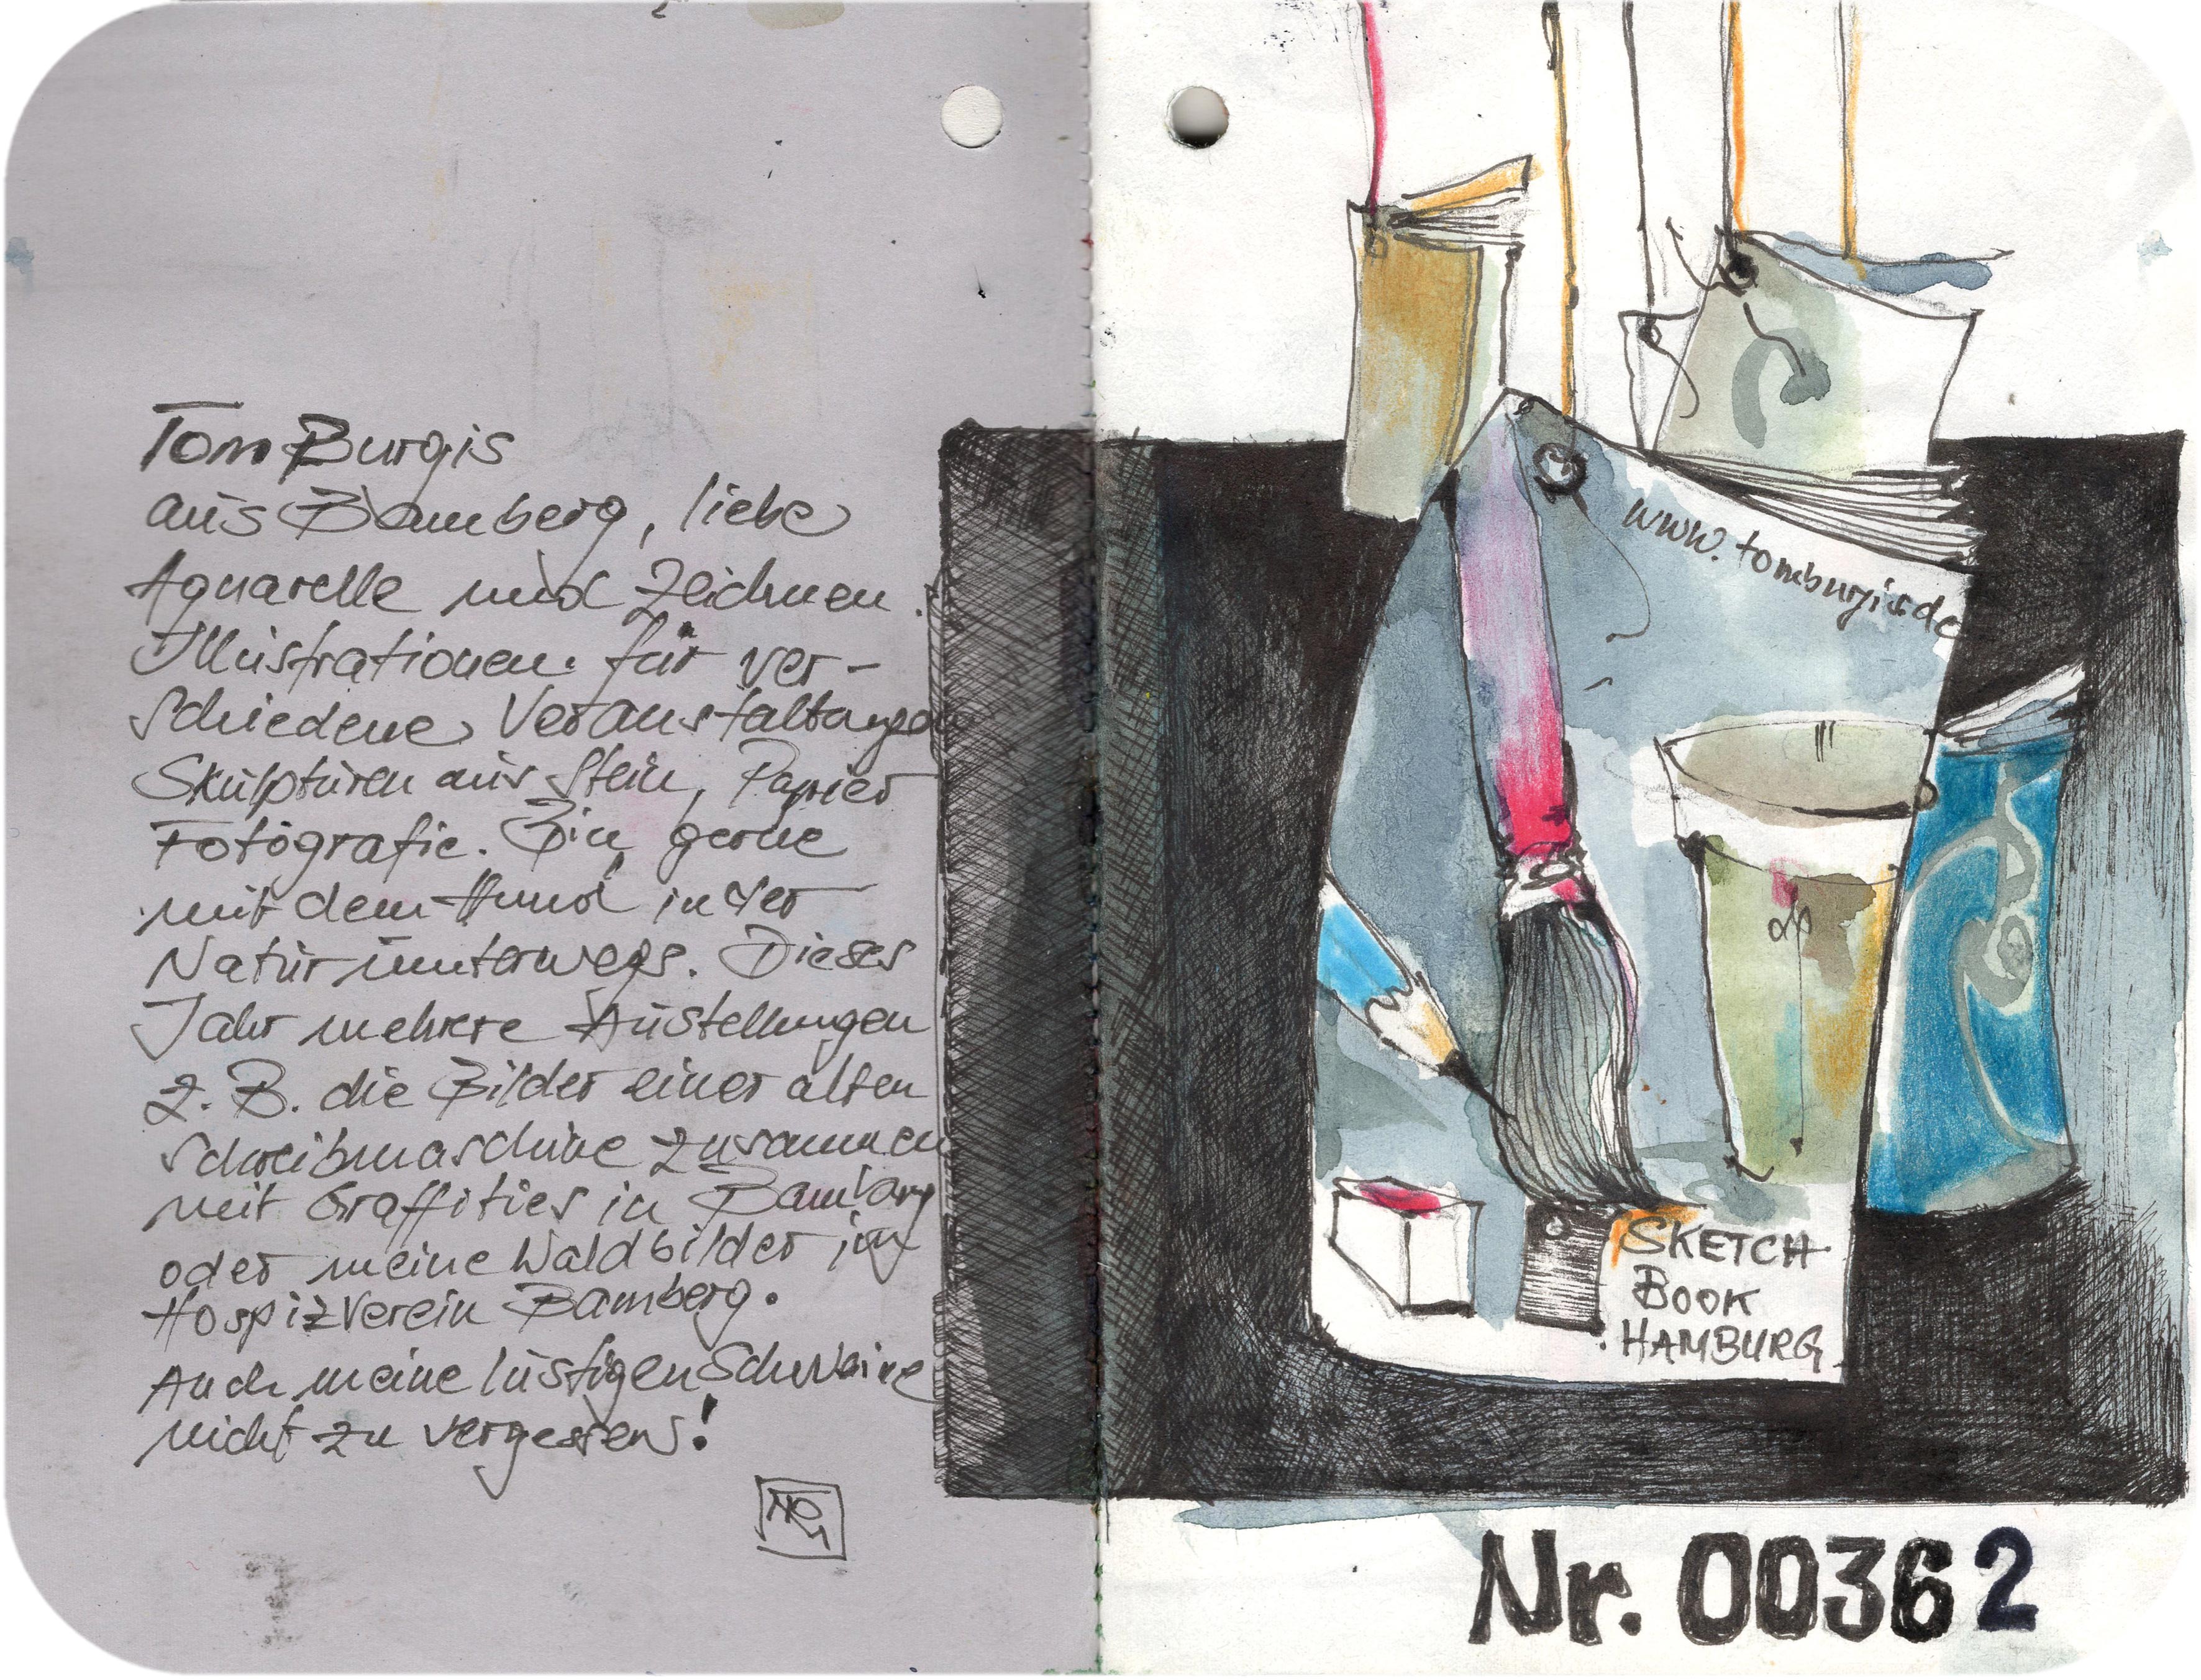 Tom Burgis
aus Bamberg, liebe
Aquarelle und Zeichnen.
Illustrationen für ver-
schiedene Veranstaltungen
Skulpturen aus Stein, Papier
Fotografie. Bin gerne
mit dem Hund in der
Natur unterwegs. Dieses
Jahr mehrere Austellungen
z. B. die Bilder einer alten
Schreibmaschine zusammen
mit Graffities in Bamberg
oder meine Waldbilder im
Hospizverein Bamberg.
Auch meine lustigen Schweine
nicht zu vergessen!
www.tomburgis.de
SKETCH
BOOK
HAMBURG
Nr. 00362